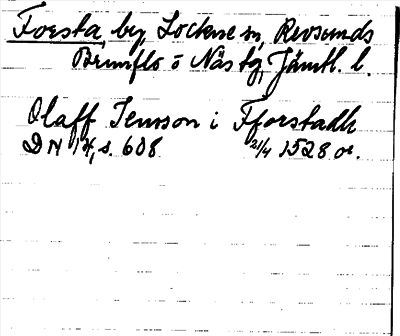 Forsta, by Lockne sn, Revsunds
Brunflo o Näs tg, Jämtl. l.
Olaff Jensson i Fforstadh
DN 14, s. 608 21/4 1528 or.